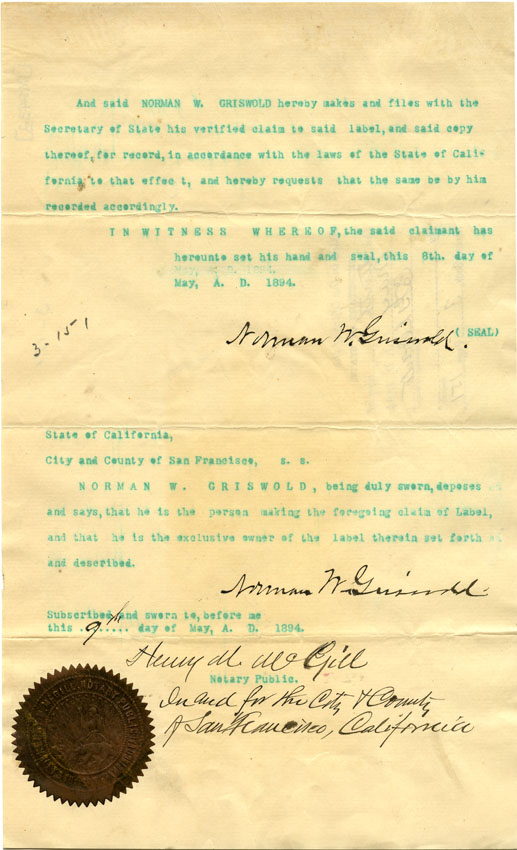 And said NORMAN W. GRISWOLD hereby makes and files with the
Secretary of State his verified claim to said label,and said copy
thereof,for record,in accordance with the laws of the State of Cali-
fornia to that effec t, and hereby requests that the same be by him
recorded accordingly.
IN WITNESS WHEREOF,the said claimant has
hereunto set his hand and seal,this 8th. day of
May, A. D. 1894.
3-151
Norman W. Griswold.
( SEAL)
State of California,
City and County of San Francisco, s. s.
NORMAN W. GRISWOLD, being duly sworn,deposes
and says,that he is the person making the foregoing claim of Label,
and that he is the exclusive owner of the label therein set forth
and described.
Norman W. Griswold.
Subscribed and sworn to,before me
this 9th day of May, A. D. 1894.
Henry M. McGill
Notary Public.
In and for the City & County
of San Francisco, California